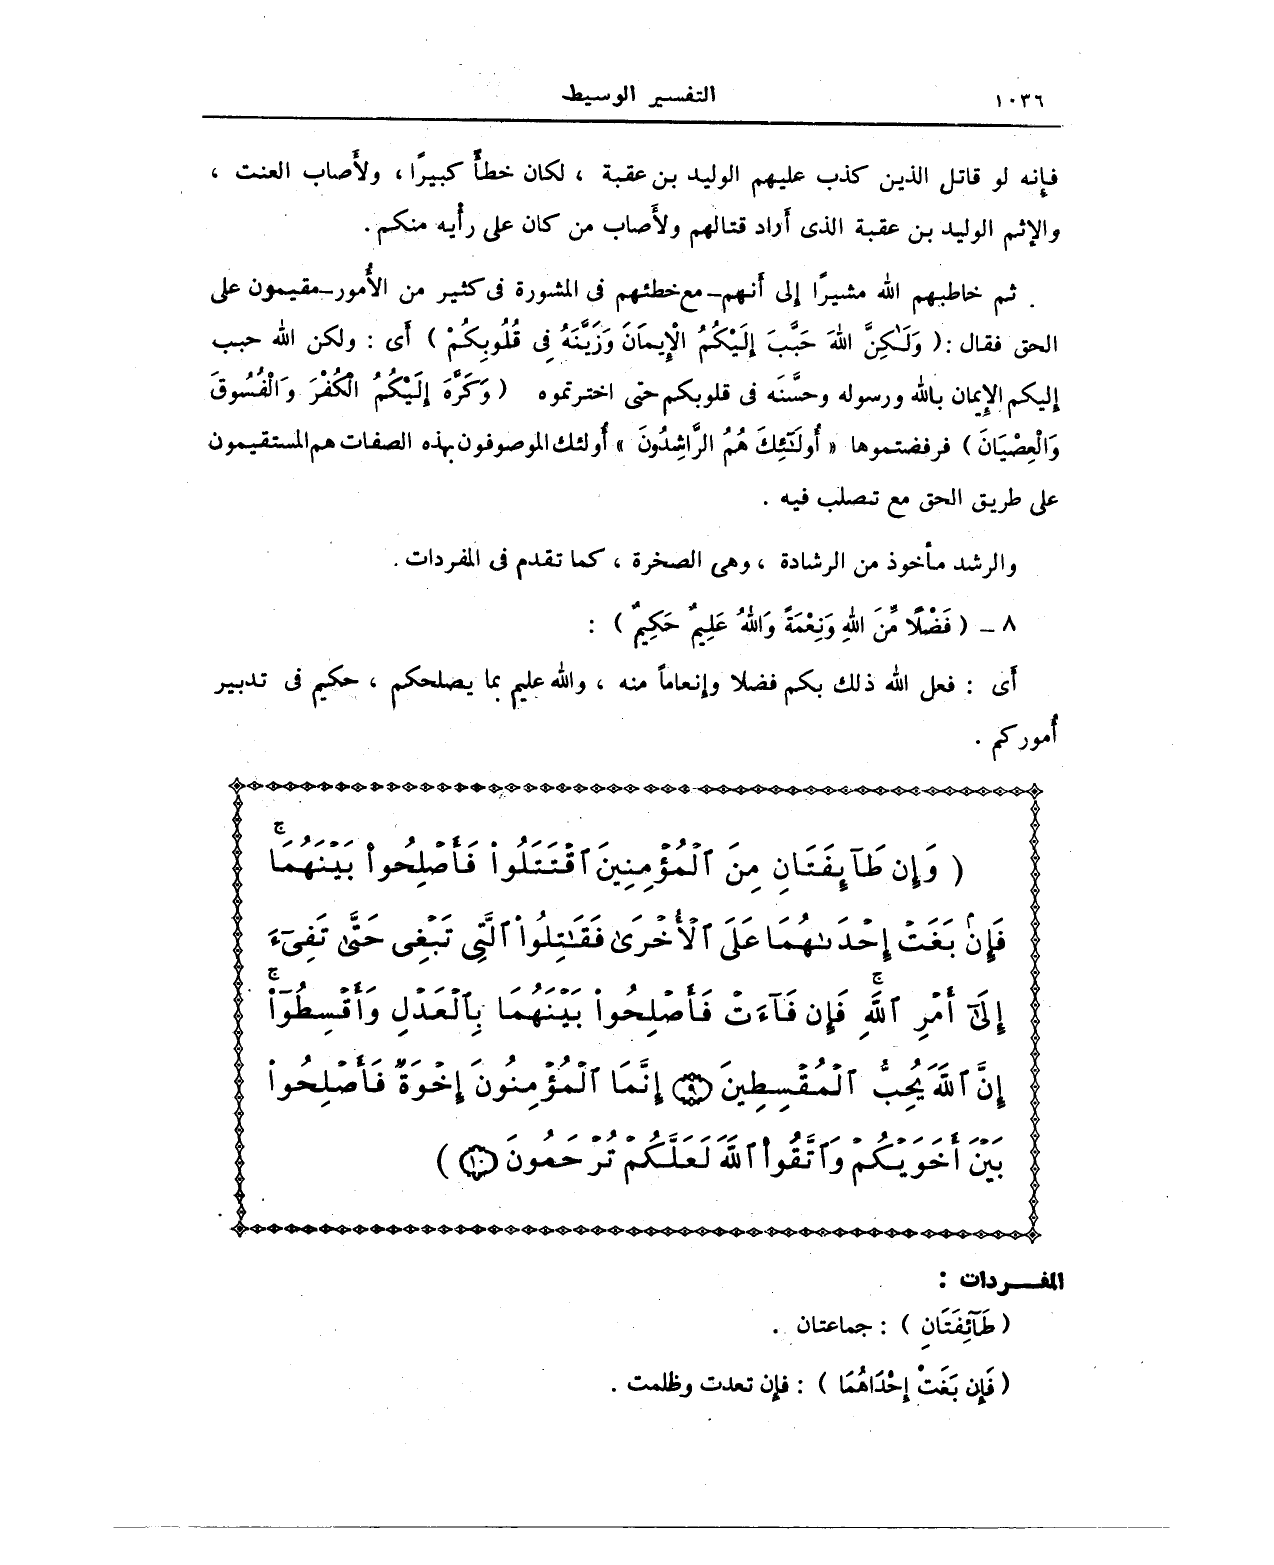 ١٠٣٦
التفسير الوسيط
فإنه لو قاتل الذين كذب عليهم الوليد بن عقبة ، لكان خطأً كبيرًا ، ولأَصاب العنت ،
والإثم الوليد بن عقبة الذى أَراد قتالهم ولأَصاب من كان على رأْيه منكم .
ثم خاطبهم الله مشيرًا إلى أَنهم - مع خطئهم فى المشورة فى كثير من الأُمور - مقيمون على
الحق فقال : ( وَلَـٰكِنَّ اللهَ حَبَّبَ إِلَيْكُمُ الْإِيمَانَ وَزَيَّنَهُ فِى قُلُوبِكُمْ ) أَى : ولكن الله حبب
إليكم الإِيمان بالله ورسوله وحسَّنَه فى قلوبكم حتى اخترتموه ( وَكَرَّهَ إِلَيْكُمُ الْكُفْرَ وَالْفُسُوقَ
وَالْعِصْيَانَ ) فرفضتموها « أُولَـٰئِكَ هُمُ الرَّاشِدُونَ » أُولئك الموصوفون بهذه الصفات هم المستقيمون
على طريق الحق مع تصلب فيه .
والرشد مأْخوذ من الرشادة ، وهى الصخرة ، كما تقدم فى المفردات .
٨ - ( فَضْلًا مِّنَ اللهِ وَنِعْمَةً وَاللهُ عَلِيمٌ حَكِيمٌ ) :
أَى : فعل الله ذلك بكم فضلا وإنعاماً منه ، والله عليم بما يصلحكم ، حكيم فى تدبير
أُموركم .
( وَإِن طَآئِفَتَانِ مِنَ ٱلْمُؤْمِنِينَ ٱقْتَتَلُوا۟ فَأَصْلِحُوا۟ بَيْنَهُمَا ۚ
فَإِنۢ بَغَتْ إِحْدَىٰهُمَا عَلَى ٱلْأُخْرَىٰ فَقَـٰتِلُوا۟ ٱلَّتِى تَبْغِى حَتَّىٰ تَفِىٓءَ
إِلَىٰٓ أَمْرِ ٱللَّهِ ۚ فَإِن فَآءَتْ فَأَصْلِحُوا۟ بَيْنَهُمَا بِٱلْعَدْلِ وَأَقْسِطُوٓا۟ ۚ
إِنَّ ٱللَّهَ يُحِبُّ ٱلْمُقْسِطِينَ ٩ إِنَّمَا ٱلْمُؤْمِنُونَ إِخْوَةٌ فَأَصْلِحُوا۟
بَيْنَ أَخَوَيْكُمْ وَٱتَّقُوا۟ ٱللَّهَ لَعَلَّكُمْ تُرْحَمُونَ ١٠ )
المفـــردات :
( طَآئِفَتَانِ ) : جماعتان .
( فَإِن بَغَتْ إِحْدَاهُمَا ) : فإن تعدت وظلمت .